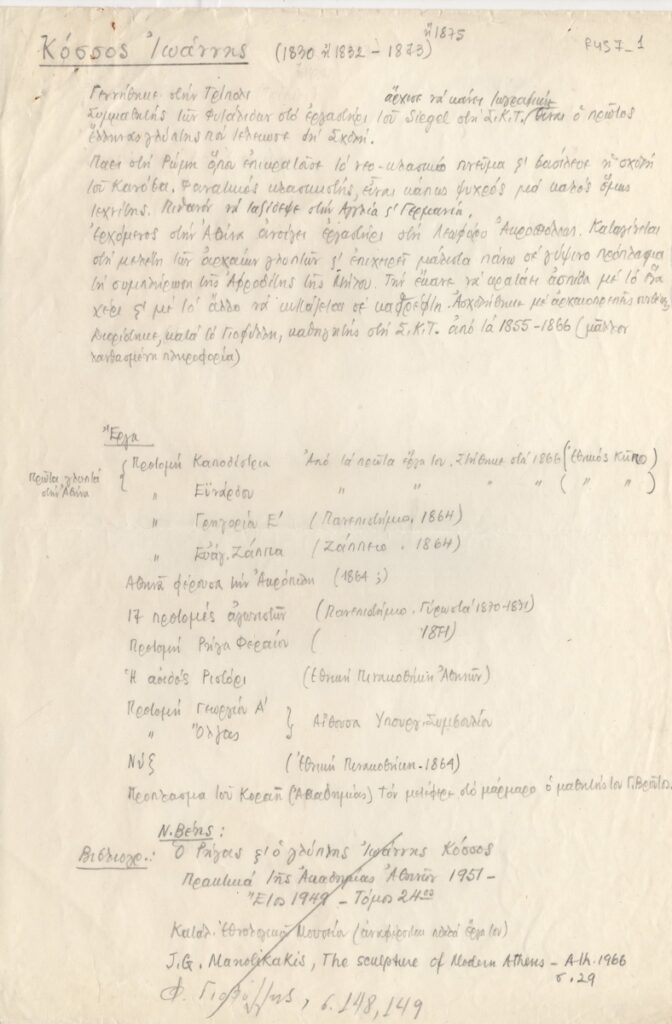 Κόσσος Ἰωάννης (1830 ἤ 1832 – 1873) ἤ 1875
P457_1
Γεννήθηκε στήν Τρίπολι
Συμμαθητής τῶν Φυτάλιδων στό ἐργαστήρι τοῦ Siegel στή Σ.Κ.Τ. Εἶναι ὁ πρῶτος
ἄρχισε νά κάνει
ἕλληνας γλύπτης πού τελείωσε τή Σχολή.
Πάει στή Ρώμη ὅπου ἐπικρατοῦσε τό νεο-κλασικό πνεῦμα κ' βασίλευε ἡ σχολή
τοῦ Κανόβα. Φανατικός κλασικιστής, εἶναι κάπως ψυχρός μά καλός ὅμως
τεχνίτης. Πιθανόν νά ταξίδεψε στήν Ἀγγλία κ' Γερμανία.
Ἐρχόμενος στήν Ἀθήνα ἀνοίγει ἐργαστήρι στή Λεωφόρο Ἀκροπόλεως. Καταγίνεται
στή μελέτη τῶν ἀρχαίων γλυπτῶν κ' ἐπιχειρεῖ μάλιστα πάνω σέ γύψινο πρόπλασμα
τή συμπλήρωση τῆς Ἀφροδίτης τῆς Μήλου. Τήν ἔκανε νά κρατάει ἀσπίδα μέ τό ἕνα
χέρι κ' μέ τό ἄλλο νά κυττάζεται σέ καθρέφτη. Ἀσχολήθηκε μέ ἀρχαιοπρεπεῖς
Διορίστηκε, κατά τό Γιοφύλλη, καθηγητής στή Σ.Κ.Τ. ἀπό τά 1855-1866 (μᾶλλον
λανθασμένη πληροφορία)
Ἔργα
Πρῶτα γλυπτά
στήν Ἀθήνα
{ Προτομή Καποδίστρια Ἀπό τά πρῶτα ἔργα του. Στήθηκε στή 1866 (Ἐθνικός Κῆπο)
" Εϋνάρδου " " " " ( " " )
" Γρηγορίου Ε' (Πανεπιστήμιο. 1864)
" Εὐάγ. Ζάππα (Ζάππειο. 1864)
Ἀθηνᾶ φέρουσα τήν Ἀκρόπολη (1864 ;)
17 προτομές ἀγωνιστῶν (Πανεπιστήμιο. Γύρω στά 1870-1871)
Προτομή Ρήγα Φεραίου ( 1871)
Ἡ ἀοιδός Ριστόρι (Ἐθνική Πινακοθήκη Ἀθηνῶν)
Προτομή Γεωργίου Α' } Αἴθουσα Ὑπουργ. Συμβουλίου
" Ὄλγας
Νύξ (Ἐθνική Πινακοθήκη - 1864)
Πρόπλασμα τοῦ Κοραῆ (Ἀκαδημίας) Τόν μετέφερε στό μάρμαρο ὁ μαθητής του Γ. Βροῦτος.
Ν. Βέης :
Βιβλιογρ.: Ὁ Ρήγας κ' ὁ γλύπτης Ἰωάννης Κόσσος
Πρακτικά τῆς Ἀκαδημίας Ἀθηνῶν 1951 –
Ἔτος 1949 – Τόμος 24ος
Κατάλ. Ἐθνολογικοῦ Μουσείου (ἀναφέρονται πολλά ἔργα του)
J.G. Manolikakis, The sculpture of Modern Athens – Ath. 1966
σ. 29
Φ. Γιοφύλλης, σ. 148, 149